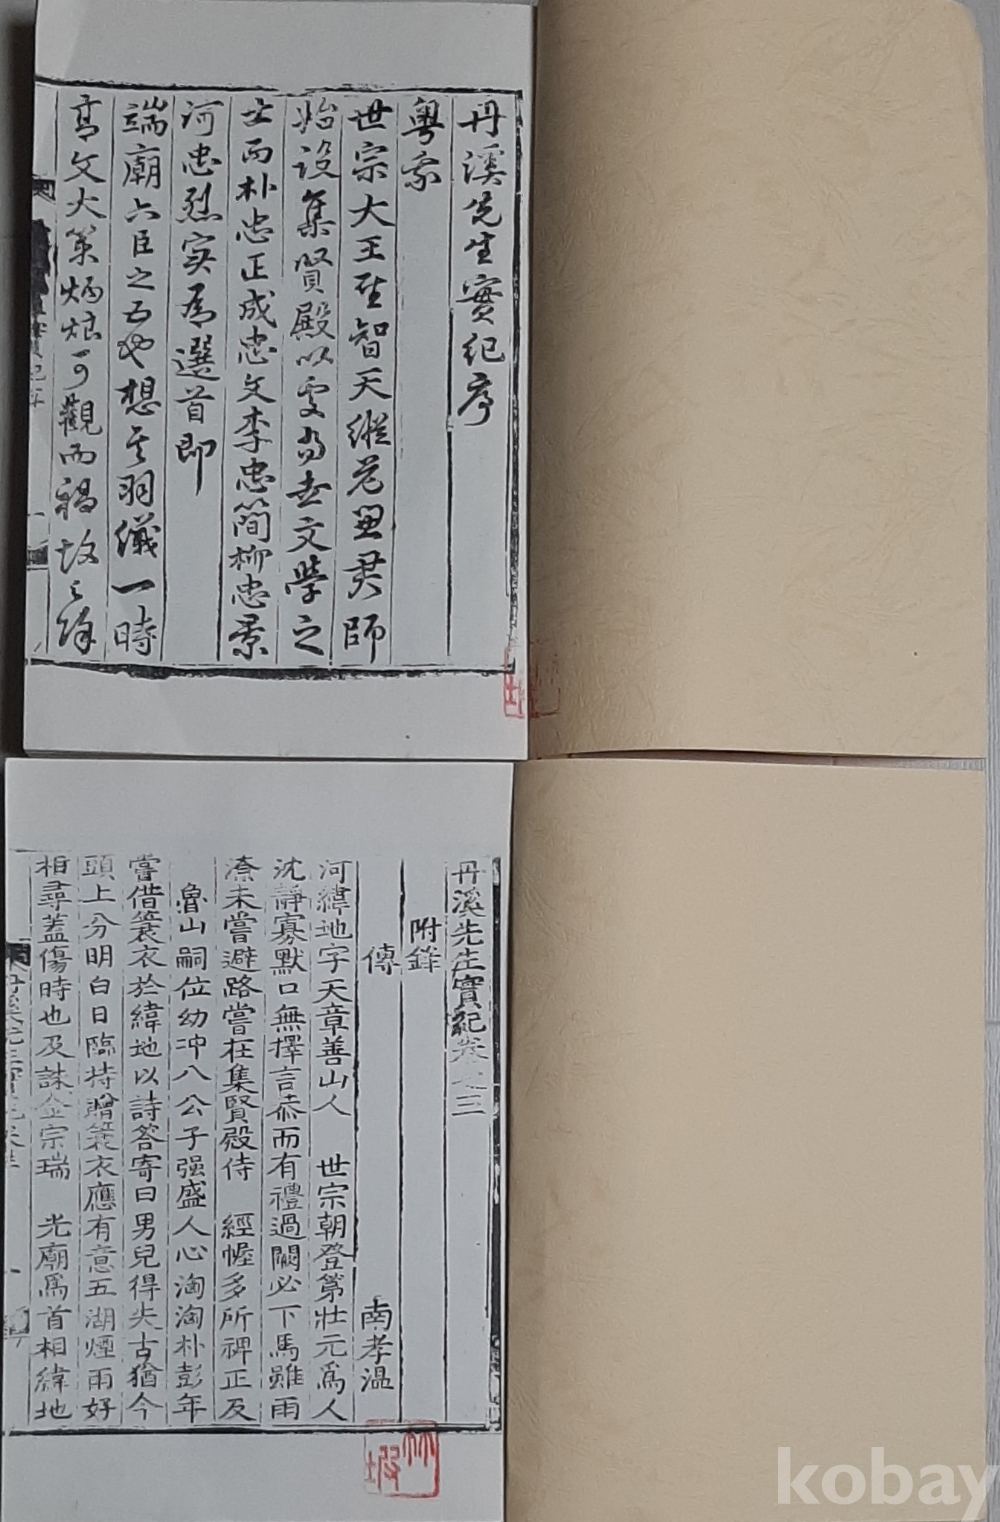 丹溪先生實紀序
粤
世宗大王 智天縱 君師
始設集賢殿以 文學之
士而朴忠正成忠文李忠簡柳忠景
河忠烈寔爲選首即
端廟六臣之五也想其羽儀一時
高文大策炳烺可觀而禍故之餘
丹溪先生實紀卷之三
附錄
傳 南孝溫
河緯地字天章善山人 世宗朝登第壯元爲人
沈靜寡默口無擇言恭而有禮過闕必下馬雖雨
潦未嘗避路嘗在集賢殿侍 經幄多所裨正及
魯山嗣位幼冲八公子强盛人心洶洶朴彭年
嘗借蓑衣於緯地以詩答寄曰男兒得失古猶今
頭上分明白日臨持贈蓑衣應有意五湖煙雨好
相尋蓋傷時也及誅金宗瑞 光廟爲首相緯地
kobay